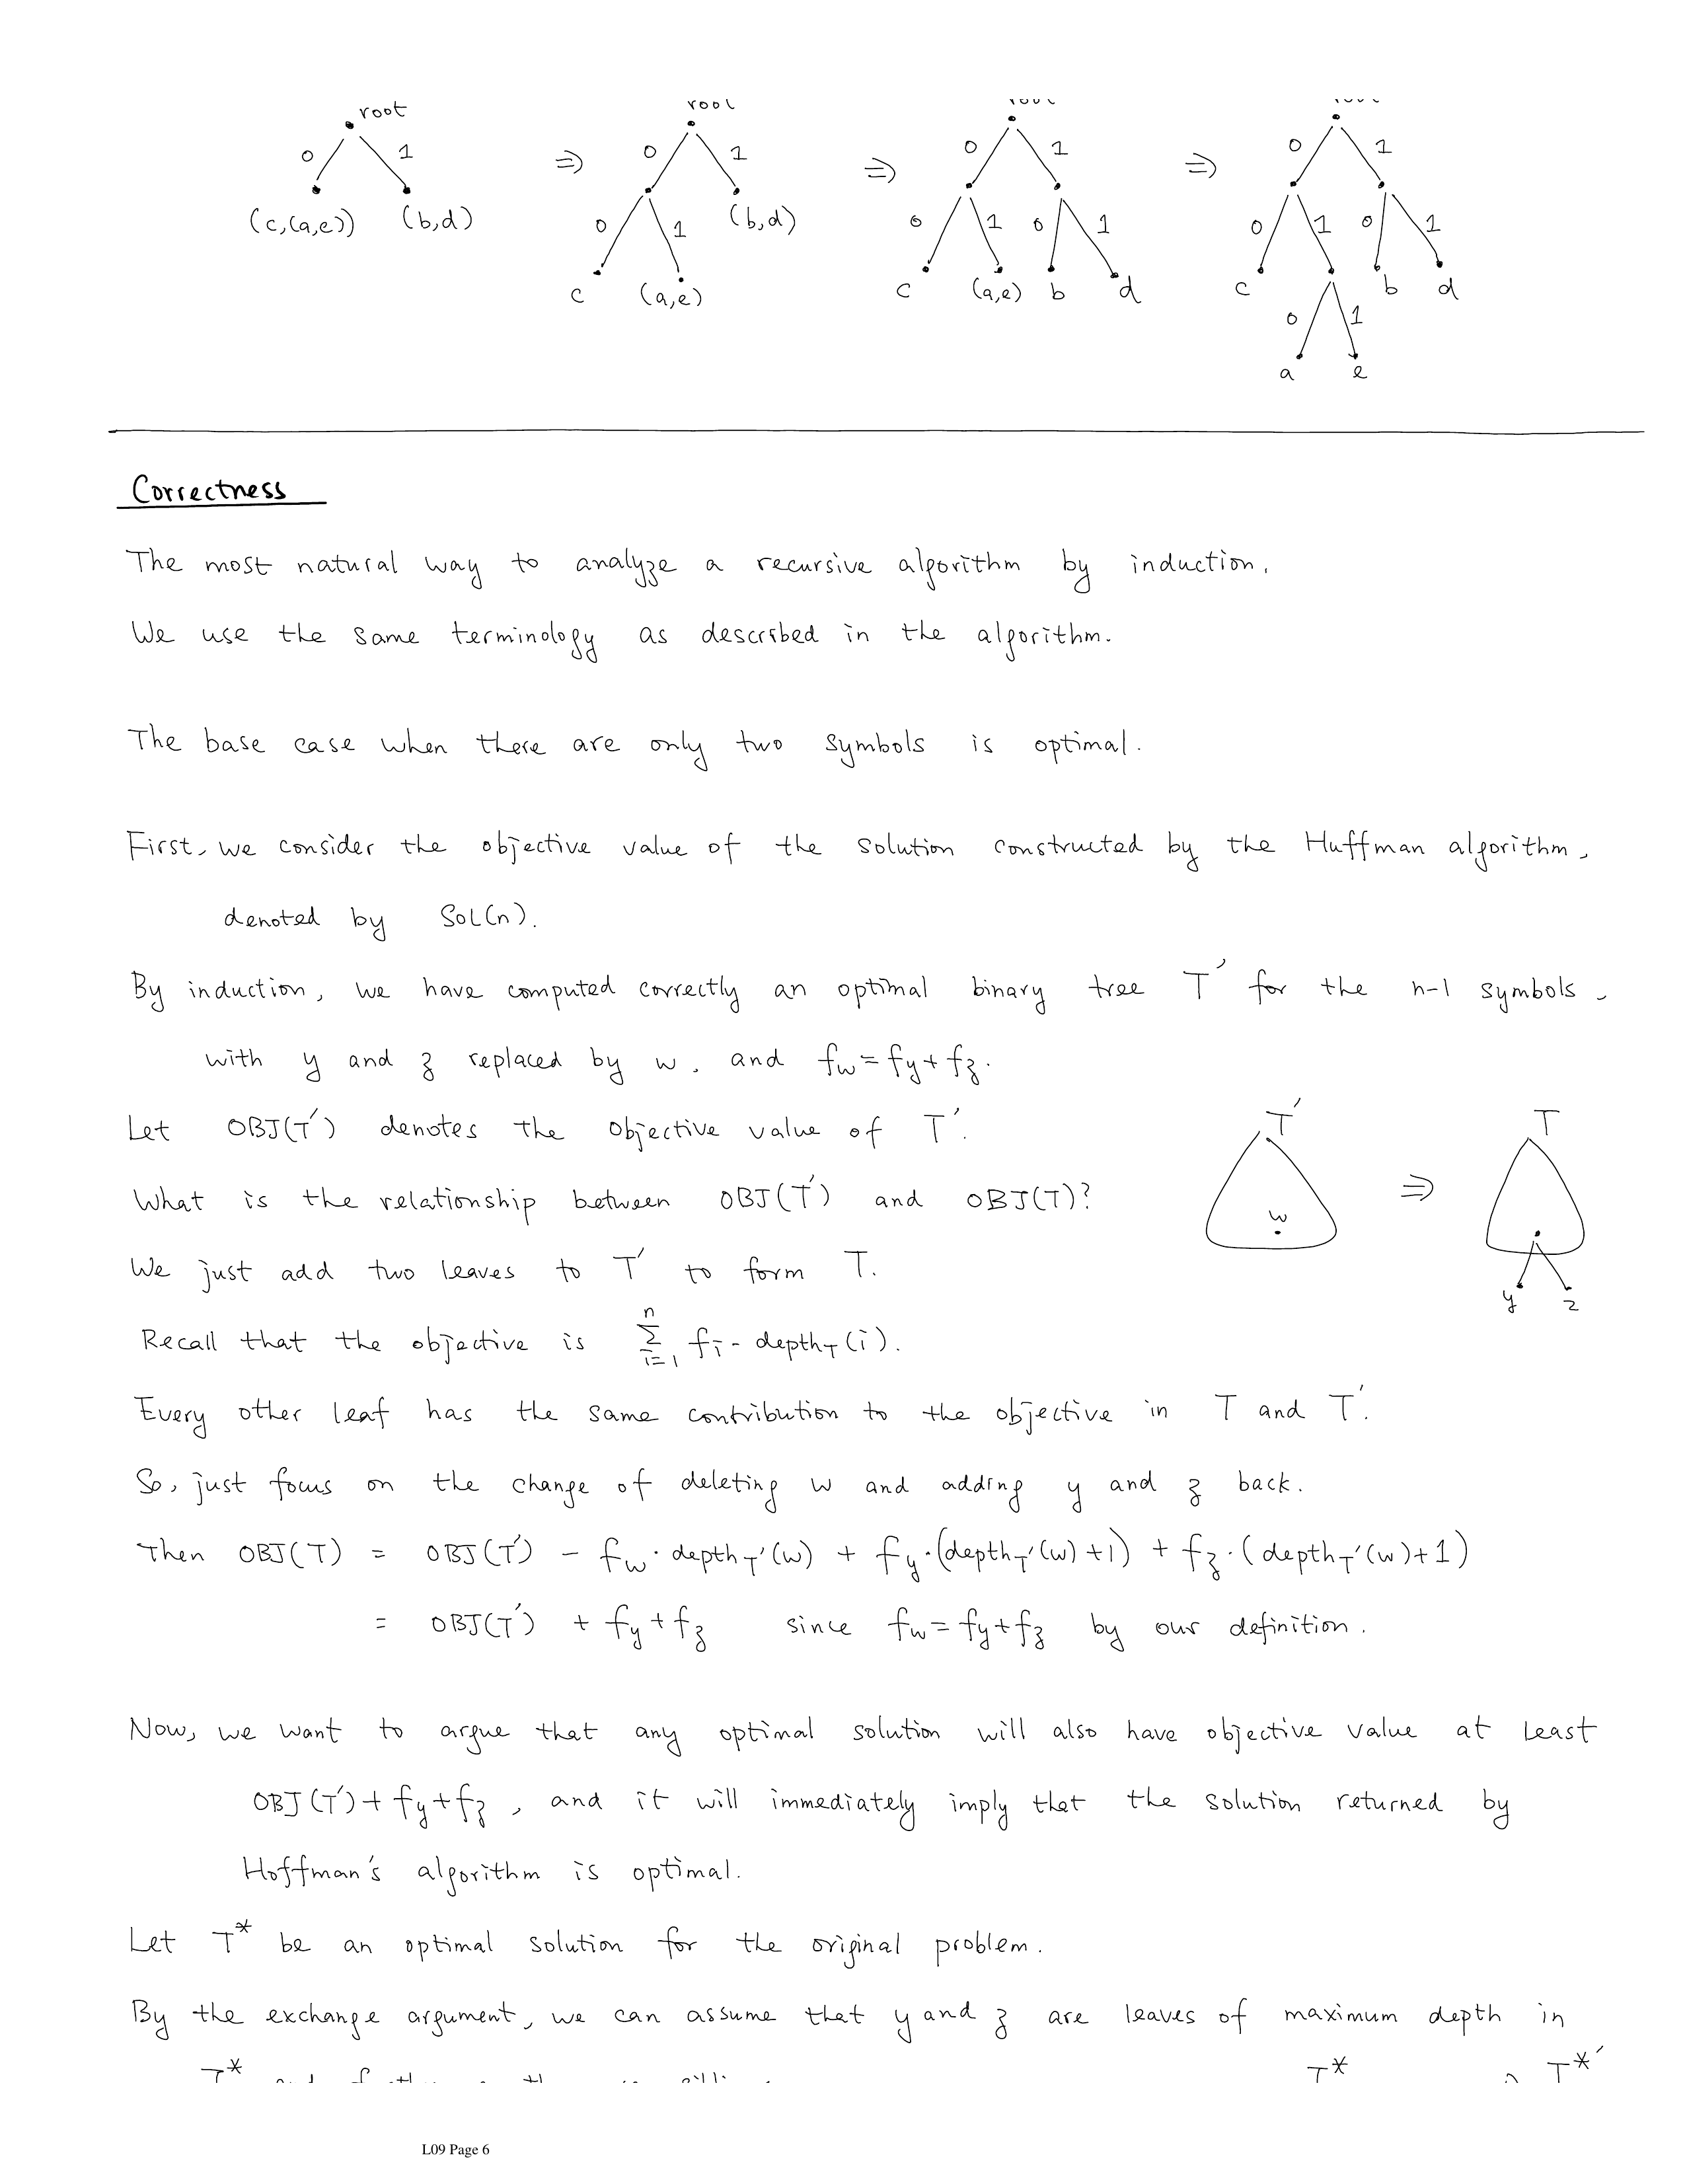 root root
0 1 ⇒ 0 1 ⇒ 0 1 ⇒ 0 1
(c,(a,e)) (b,d) 0 1 (b,d) 0 1 0 1 0 1 0 1
c (a,e) c (a,e) b d c b d
0 1
a e
Correctness
The most natural way to analyze a recursive algorithm by induction.
We use the same terminology as described in the algorithm.
The base case when there are only two symbols is optimal.
First, we consider the objective value of the solution constructed by the Huffman algorithm,
denoted by SOL(n).
By induction, we have computed correctly an optimal binary tree T' for the n-1 symbols,
with y and z replaced by w, and f_w = f_y + f_z.
Let OBJ(T') denotes the objective value of T'.
What is the relationship between OBJ(T') and OBJ(T)?
We just add two leaves to T' to form T.
T' ⇒ T
w
y z
Recall that the objective is Σ_{i=1}^{n} f_i · depth_T(i).
Every other leaf has the same contribution to the objective in T and T'.
So, just focus on the change of deleting w and adding y and z back.
Then OBJ(T) = OBJ(T') - f_w · depth_T'(w) + f_y · (depth_T'(w)+1) + f_z · (depth_T'(w)+1)
= OBJ(T') + f_y + f_z since f_w = f_y + f_z by our definition.
Now, we want to argue that any optimal solution will also have objective value at least
OBJ(T') + f_y + f_z, and it will immediately imply that the solution returned by
Hoffman's algorithm is optimal.
Let T* be an optimal solution for the original problem.
By the exchange argument, we can assume that y and z are leaves of maximum depth in
T* T* T*'
L09 Page 6